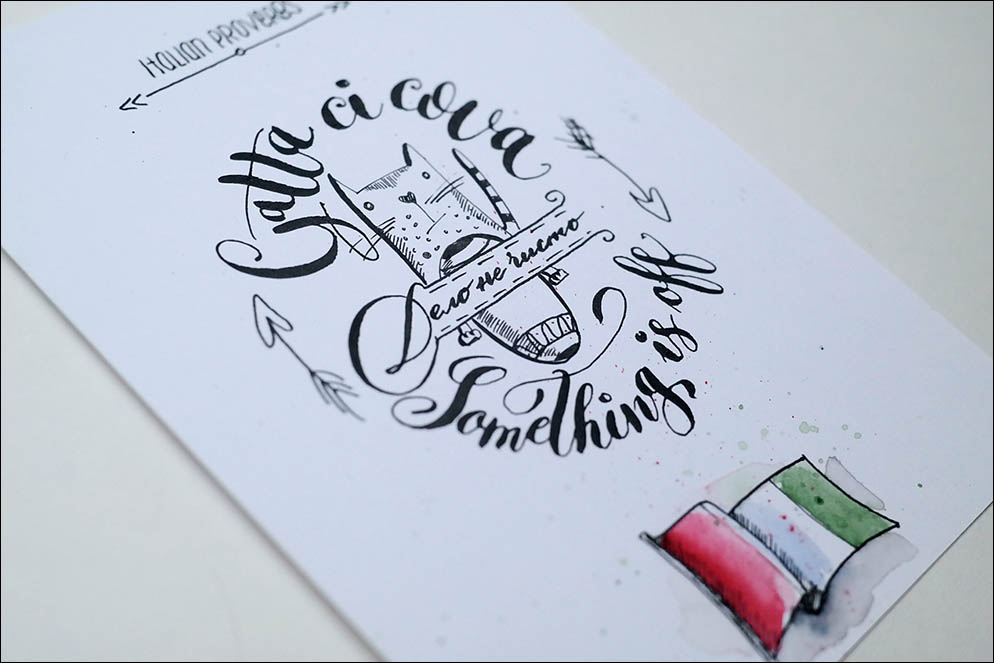 Italian Proverbs
Gatta ci cova
Дело не чисто
Something is off